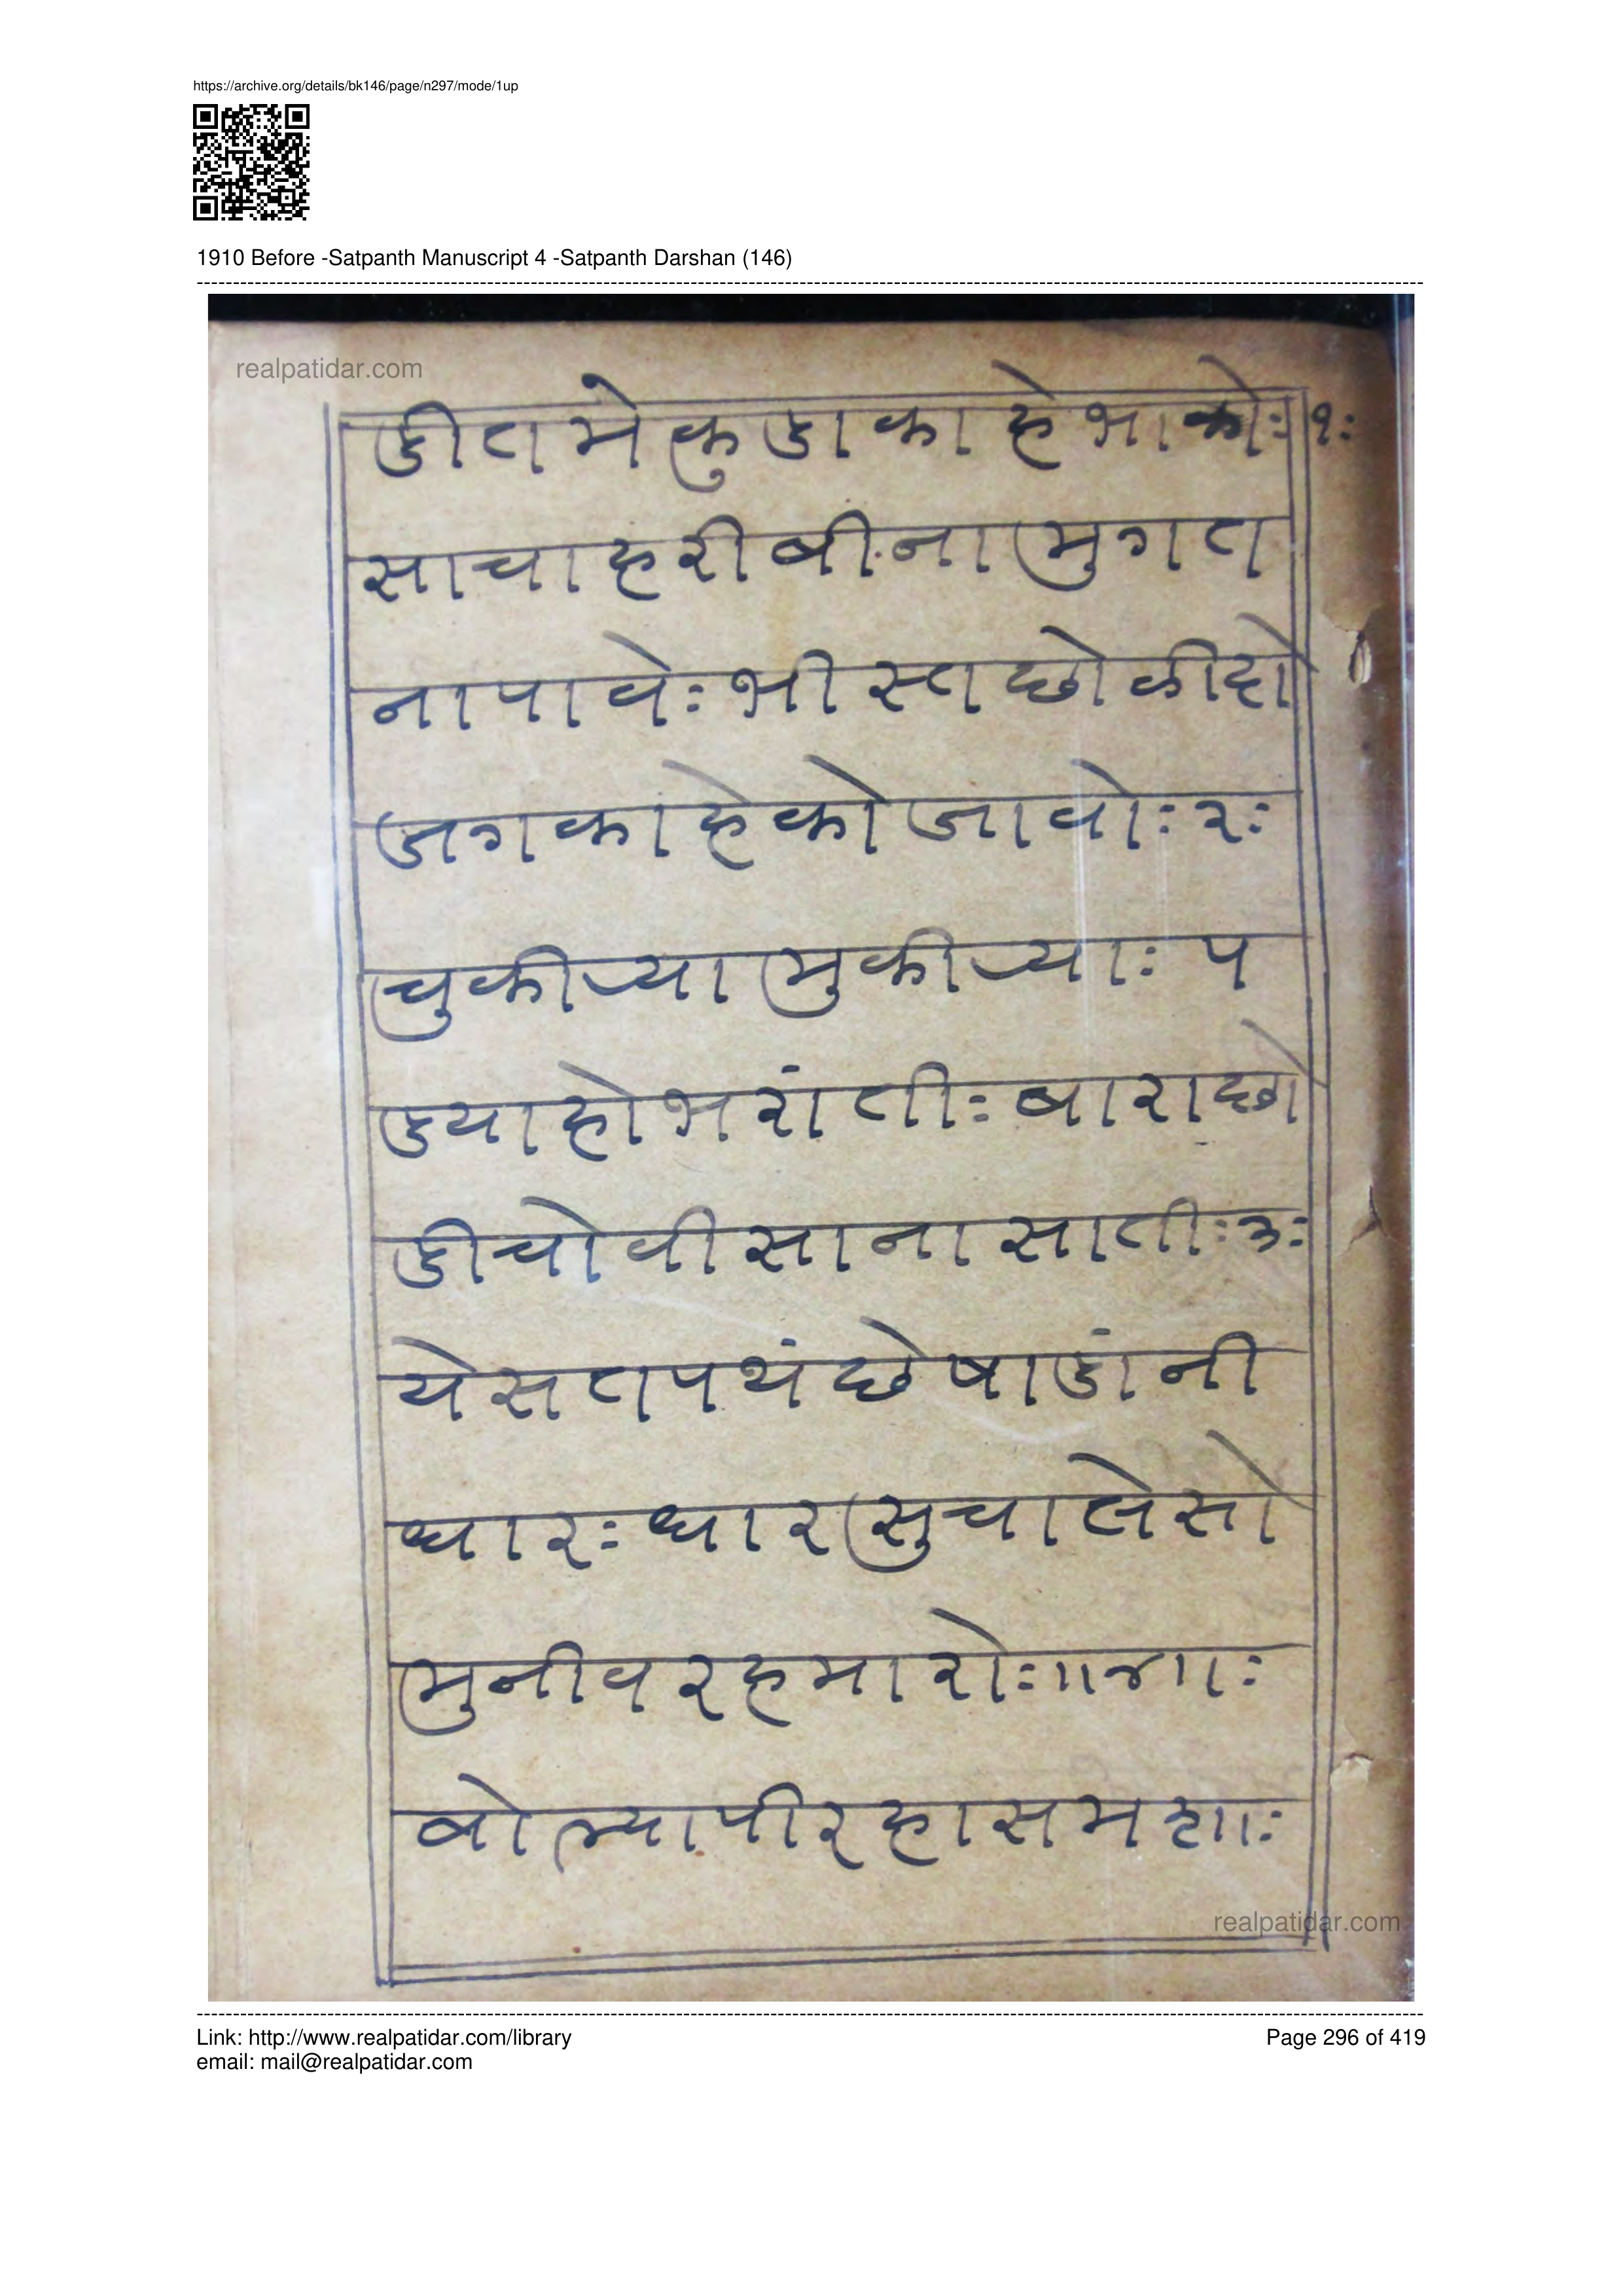 https://archive.org/details/bk146/page/n297/mode/1up
1910 Before -Satpanth Manuscript 4 -Satpanth Darshan (146)
realpatidar.com
डीतमेकुडाकाहेभाकोः१ः
साचाहरीबीनामुगत
नापावेः भीस्तछोळीदो
जगकाहेकोजावोः२ः
चुकीय्यामुकीय्याः प
ड्याहोभरांतीः बाराछो
डीचोवीसानासातीः३ः
येसतपथंछेषाडांनी
धारः धारसुचालेसो
मुनीवरहमारोः॥४॥ः
बोल्यापीरहासमशाः
realpatidar.com
Link: http://www.realpatidar.com/library
Page 296 of 419
email: mail@realpatidar.com